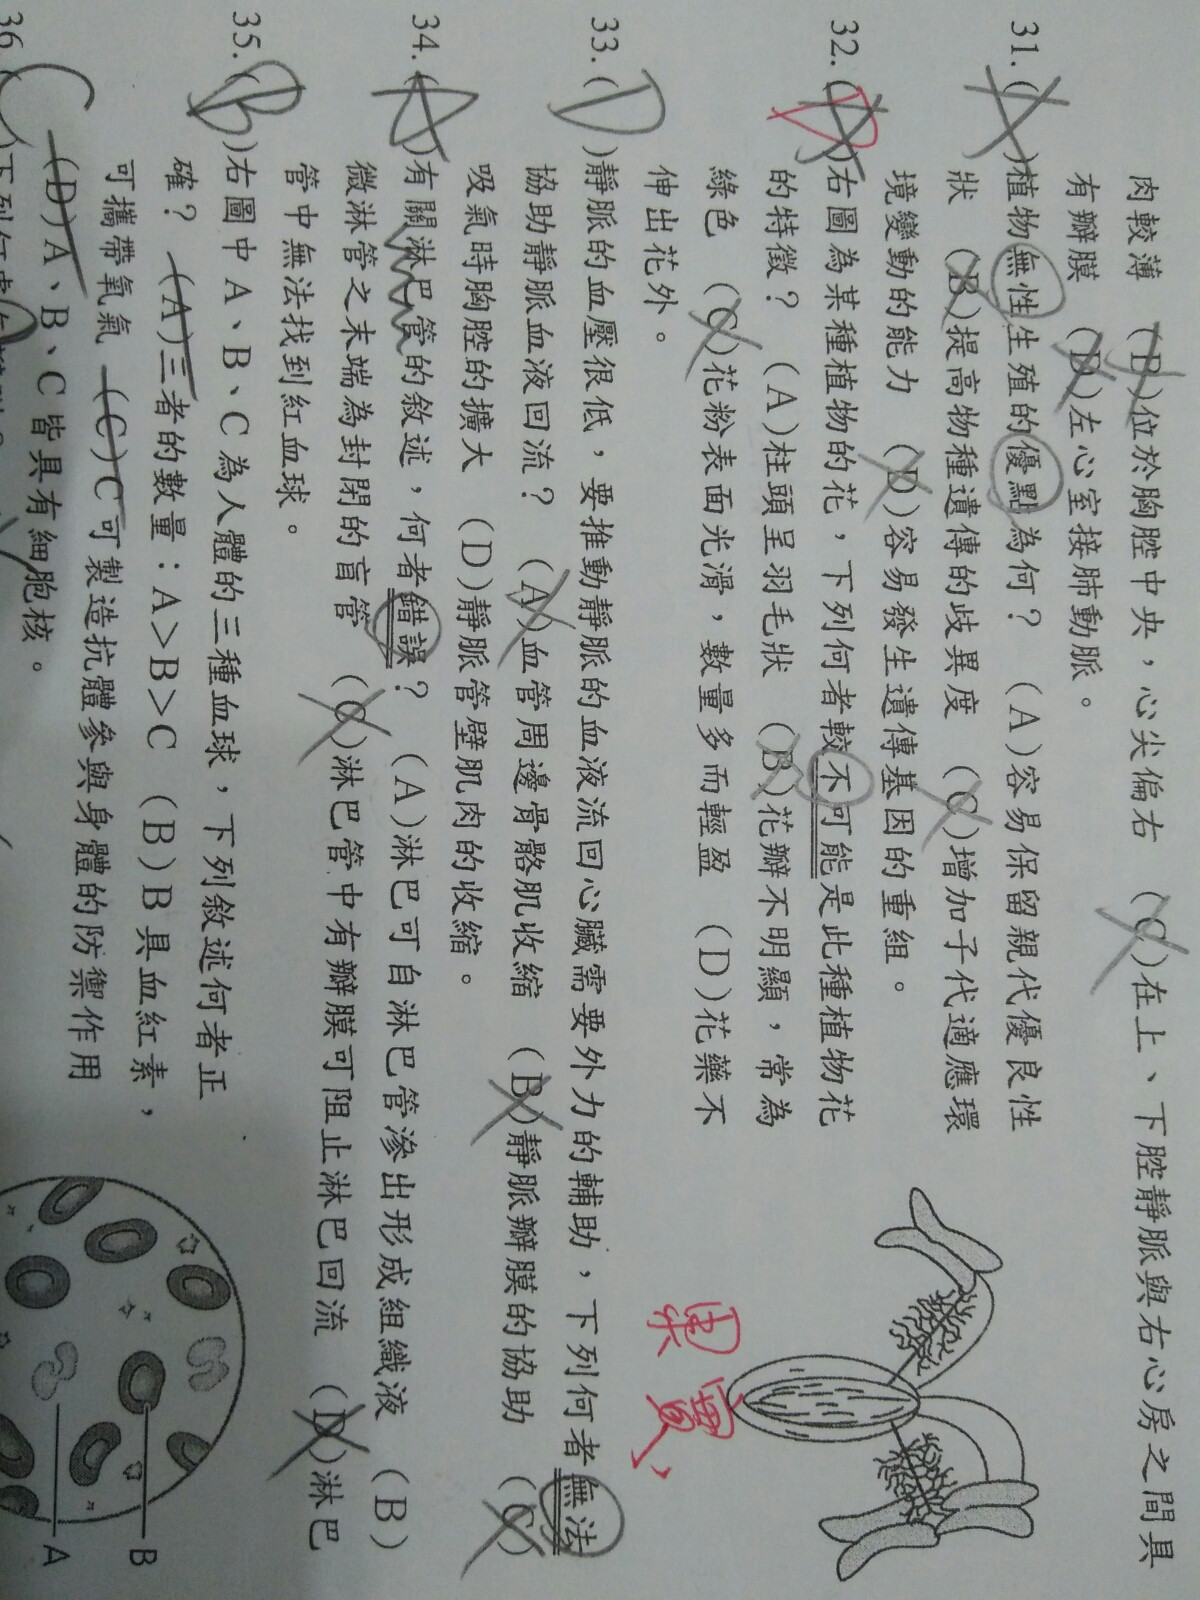 肉較薄 (B)位於胸腔中央，心尖偏右 (C)在上、下腔靜脈與右心房之間具
有瓣膜 (D)左心室接肺動脈。
31.(A)植物無性生殖的優點為何？ (A)容易保留親代優良性
狀 (B)提高物種遺傳的歧異度 (C)增加子代適應環
境變動的能力 (D)容易發生遺傳基因的重組。
32.(D)右圖為某種植物的花，下列何者較不可能是此種植物花
的特徵？ (A)柱頭呈羽毛狀 (B)花瓣不明顯，常為
綠色 (C)花粉表面光滑，數量多而輕盈 (D)花藥不
伸出花外。
果實
33.(D)靜脈的血壓很低，要推動靜脈的血液流回心臟需要外力的輔助，下列何者無法
協助靜脈血液回流？ (A)血管周邊骨骼肌收縮 (B)靜脈瓣膜的協助 (C)
吸氣時胸腔的擴大 (D)靜脈管壁肌肉的收縮。
34.(A)有關淋巴管的敘述，何者錯誤？ (A)淋巴可自淋巴管滲出形成組織液 (B)
微淋管之末端為封閉的盲管 (C)淋巴管中有瓣膜可阻止淋巴回流 (D)淋巴
管中無法找到紅血球。
35.(B)右圖中A、B、C為人體的三種血球，下列敘述何者正
確？ (A)三者的數量：A＞B＞C (B)B具血紅素，
可攜帶氧氣 (C)C可製造抗體參與身體的防禦作用
(D)A、B、C皆具有細胞核。
B
A
36.(C)下列何者